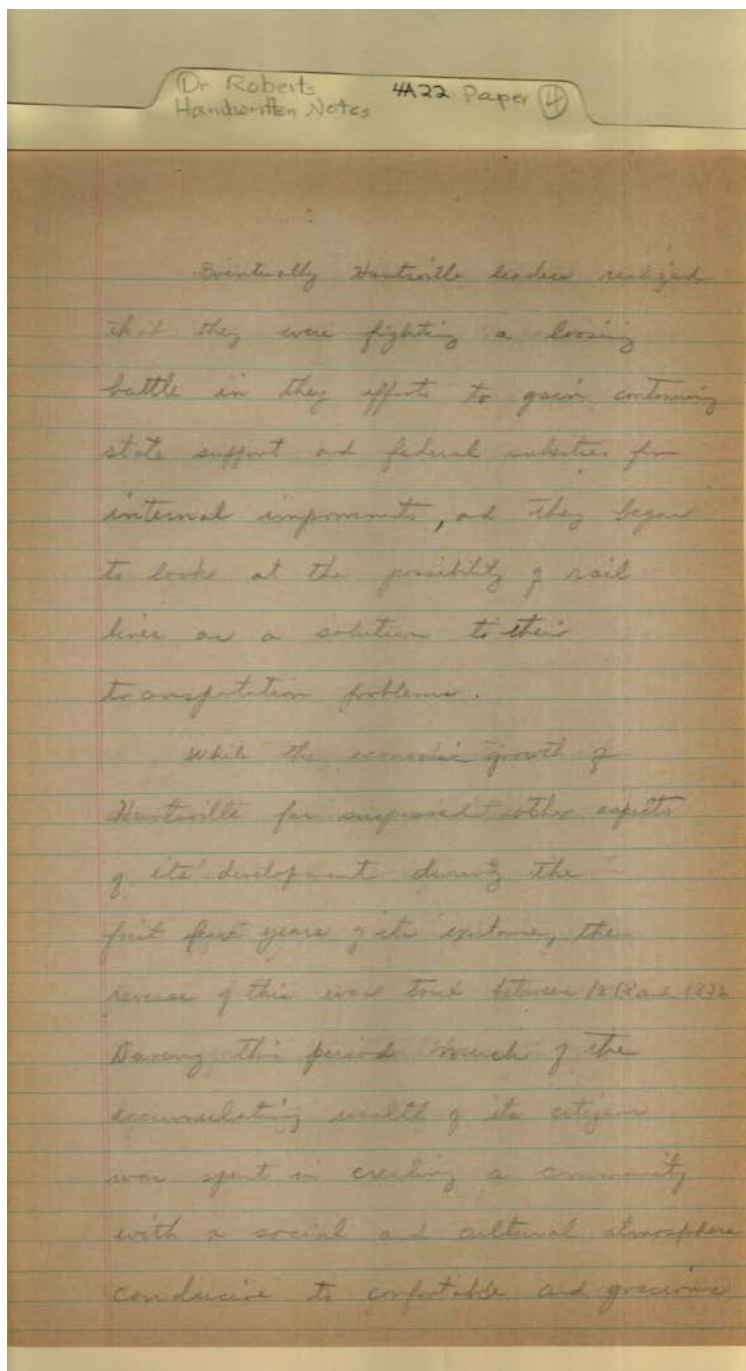 Dr Roberts 4A22 Paper 4
Handwritten Notes
Eventually Huntsville leaders realized
that they were fighting a loosing
battle in they efforts to gain continuing
state support and federal subsities for
internal improvments, and they began
to look at the possibility of rail
lines as a solution to their
transportation problems.
While the economic growth of
Huntsville far surpassed other aspects
of its development during the
first few years of its existance, the
reverse of this was true between 1818 and
During this period much of the
accumulating wealth of its citizens
was spent in creating a community
with a social and cultural atmosphere
conducive to comfortable and gracious